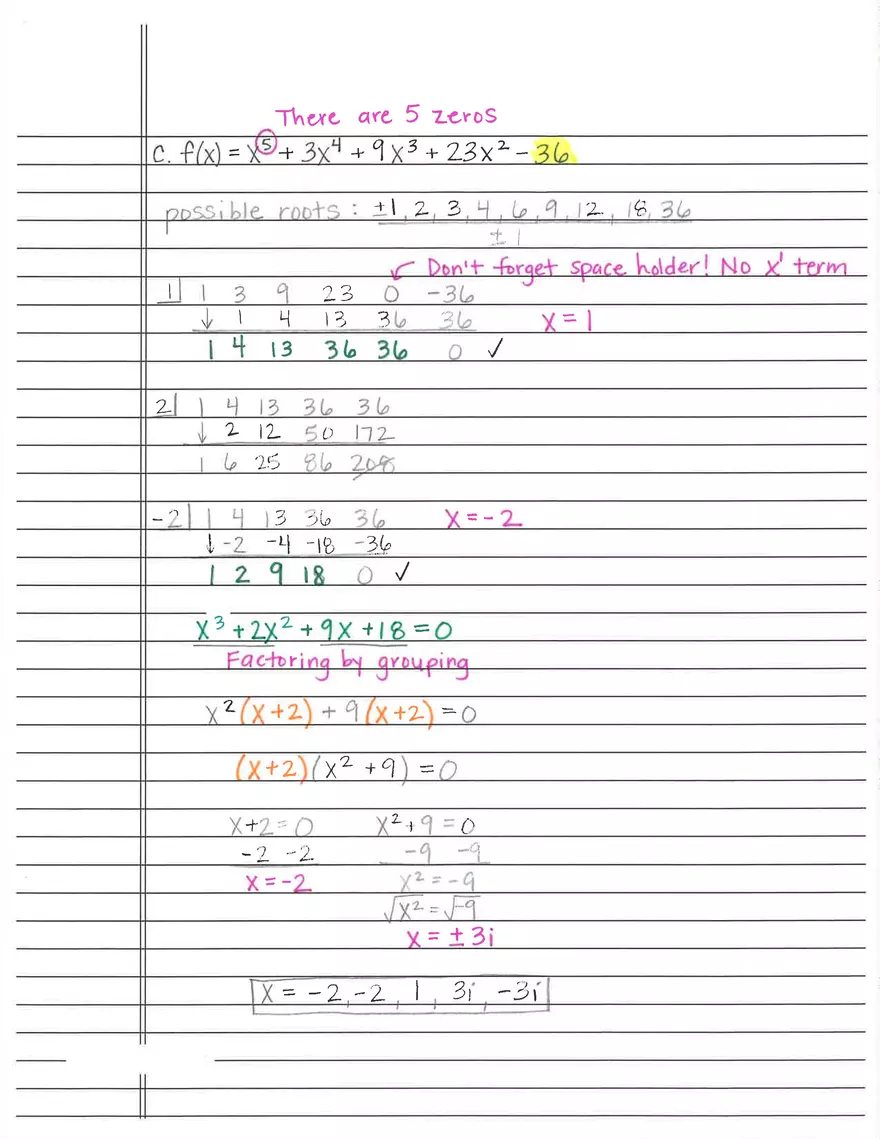 There are 5 zeros
C. f(x) = x⁵ + 3x⁴ + 9x³ + 23x² - 36
possible roots : ±1, 2, 3, 4, 6, 9, 12, 18, 36
± 1
Don't forget space holder! No x' term
1| 1 3 9 23 0 -36
↓ 1 4 13 36 36 x = 1
1 4 13 36 36 0 ✓
2| 1 4 13 36 36
↓ 2 12 50 172
1 6 25 86 208
-2| 1 4 13 36 36 x = -2
↓ -2 -4 -18 -36
1 2 9 18 0 ✓
x³ + 2x² + 9x + 18 = 0
Factoring by grouping
x²(x+2) + 9(x+2) = 0
(x+2)(x² + 9) = 0
x+2 = 0 x² + 9 = 0
-2 -2 -9 -9
x = -2 x² = -9
√x² = √-9
x = ± 3i
x = -2, -2, 1, 3i, -3i